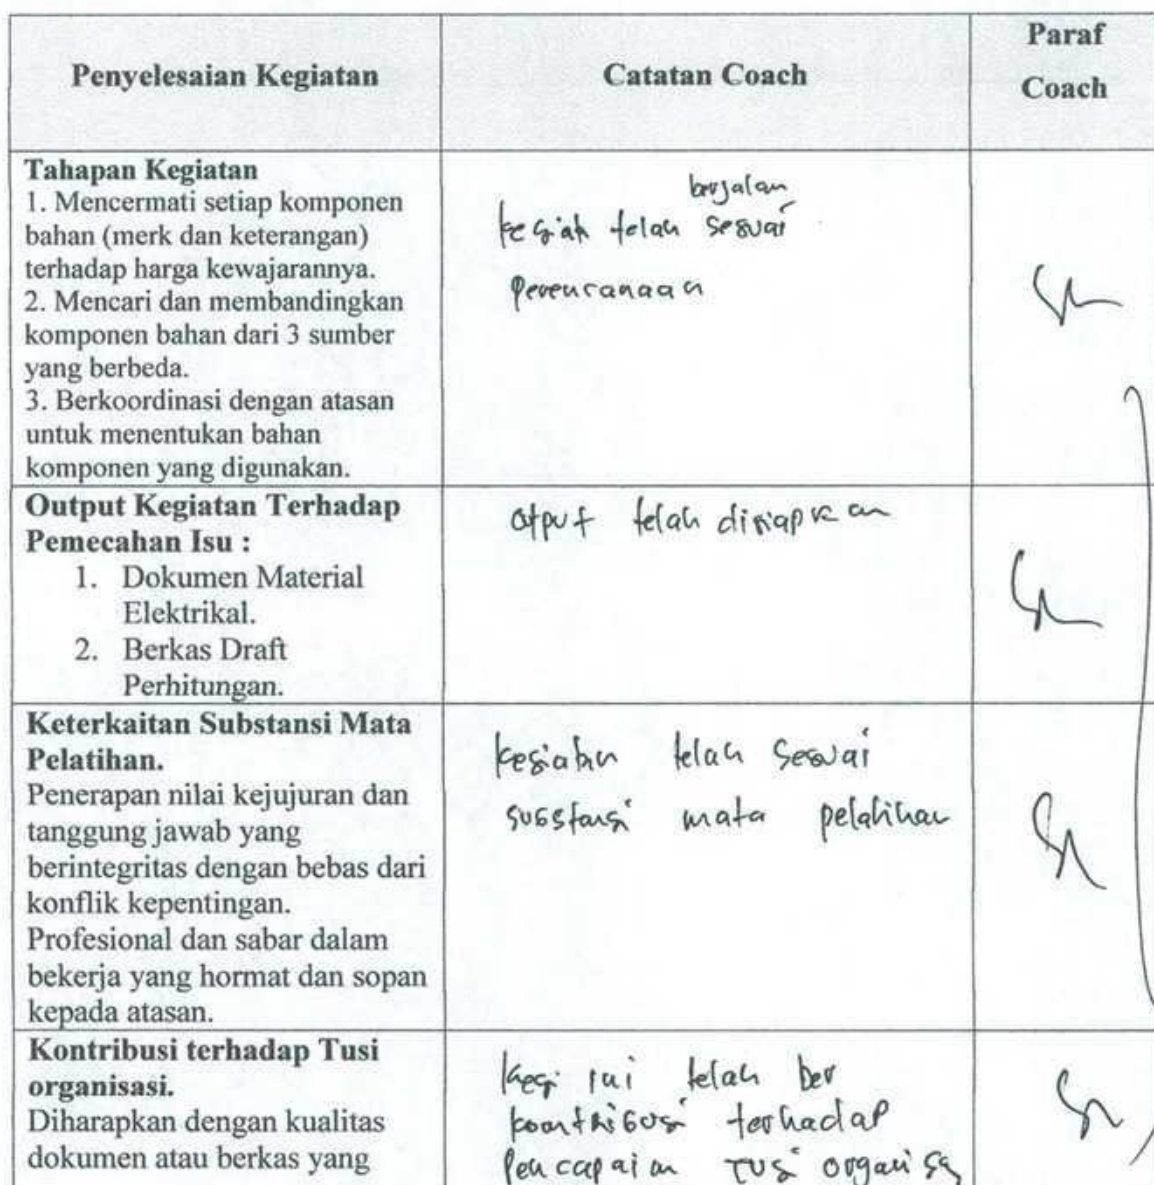 Penyelesaian Kegiatan
Catatan Coach
Paraf
Coach
Tahapan Kegiatan
1. Mencermati setiap komponen
bahan (merk dan keterangan)
terhadap harga kewajarannya.
2. Mencari dan membandingkan
komponen bahan dari 3 sumber
yang berbeda.
3. Berkoordinasi dengan atasan
untuk menentukan bahan
komponen yang digunakan.
berjalan
telah sesuai
perencanaan
Output Kegiatan Terhadap
Pemecahan Isu :
1. Dokumen Material
Elektrikal.
2. Berkas Draft
Perhitungan.
otput telah disiapkan
Keterkaitan Substansi Mata
Pelatihan.
Penerapan nilai kejujuran dan
tanggung jawab yang
berintegritas dengan bebas dari
konflik kepentingan.
Profesional dan sabar dalam
bekerja yang hormat dan sopan
kepada atasan.
kegiatan telah sesuai
substansi mata pelatihan
Kontribusi terhadap Tusi
organisasi.
Diharapkan dengan kualitas
dokumen atau berkas yang
kegi ini telah ber
kontribusi terhadap
pencapaian tusi organisa